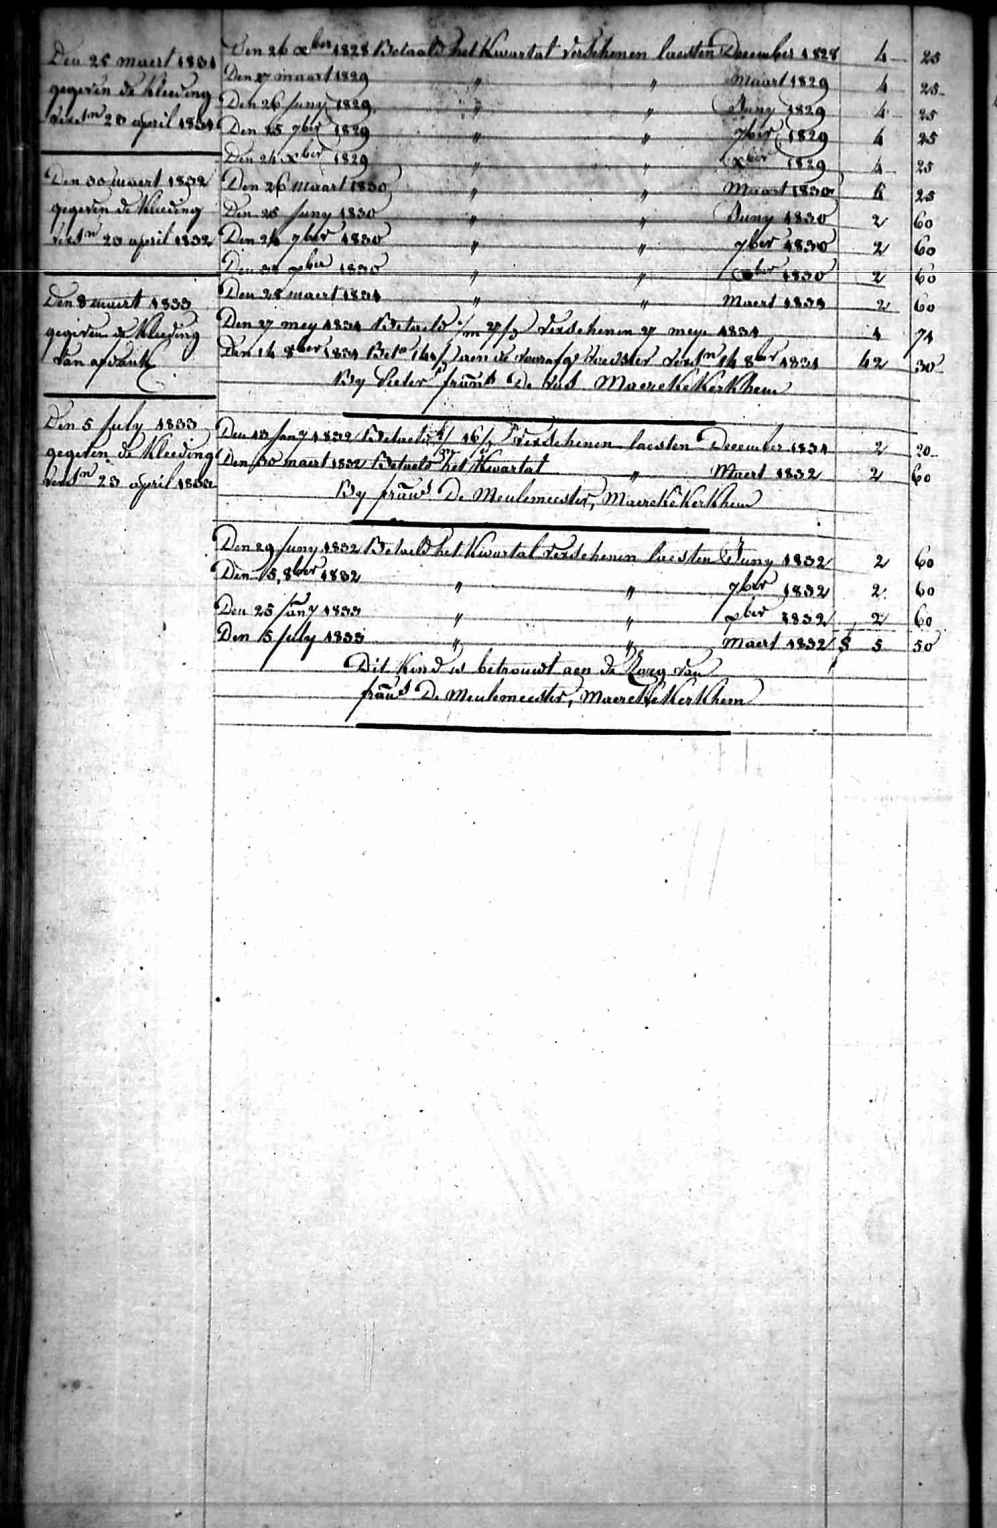 Den 25 maert 1831
gegeven de Kleeding
verstn 23 april 1831
Den 30 maert 1832
gegeven de Kleeding
verstn 23 april 1832
Den 8 maert 1833
gegeven de Kleeding
van
Den 5 July 1833
gegeven de Kleeding
verstn 23 april 1833
Den 26 xber 1828 Betaald het Kwartal verschenen laesten December 1828 4 25
Den 27 maart 1829 " " Maart 1829 4 25
Den 26 Juny 1829 " " Juny 1829 4 25
Den 25 7ber 1829 " " 7ber 1829 4 25
Den 24 xber 1829 " " xber 1829 4 25
Den 26 Maart 1830 " " Maart 1830 4 25
Den 25 Juny 1830 " " Juny 1830 2 60
Den 24 7ber 1830 " " 7ber 1830 2 60
Den 31 xber 1830 " " xber 1830 2 60
Den 25 maert 1831 " " Maert 1831 2 60
Den 27 mey 1831 Betaeld verschenen 27 meye 1831 1 74
Den 14 8ber 1831 aen de voorsz verstn 14 8ber 1831 42 30
By Pieter frans De Vos Maerckekerkhem
Den 13 Jany 1832 Betaeld verschenen laesten December 1831 2 20
Den 30 maert 1832 Betaeld het Kwartal " Maert 1832 2 60
By frans De Meulemeester, Maerckekerkhem
Den 29 Juny 1832 Betaeld het Kwartal verschenen laesten Juny 1832 2 60
Den 5 8ber 1832 " " 7ber 1832 2 60
Den 25 Jany 1833 " " xber 1832 2 60
Den 5 July 1833 " " Maert 1832 5 50
Dit Kind is betrouwt aen de Zorg van
frans De Meulemeester, Maerckekerkhem